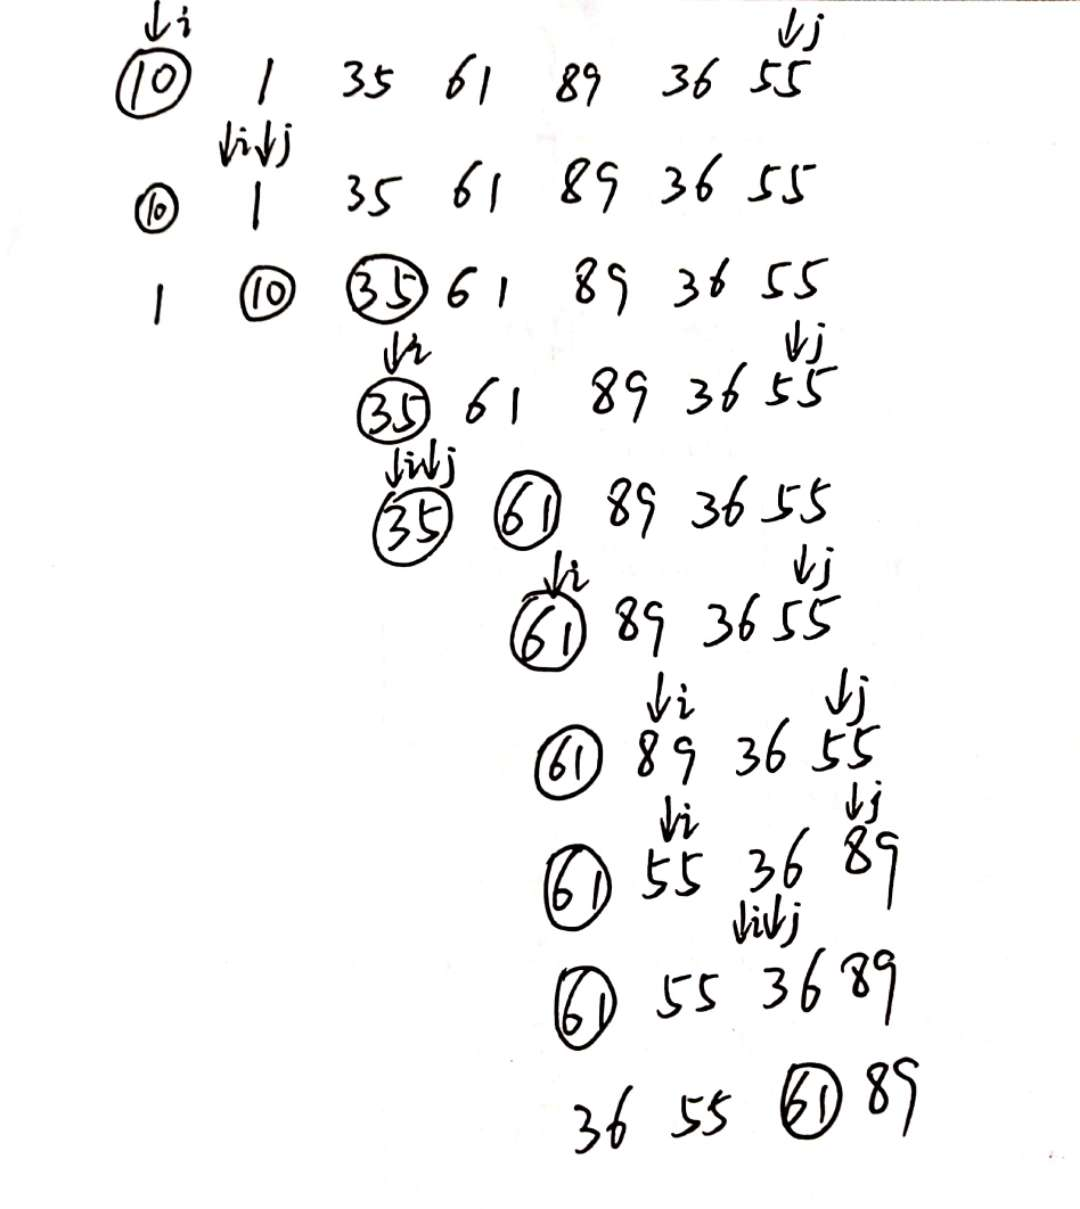 ↓i ↓j
10 1 35 61 89 36 55
↓i↓j
10 1 35 61 89 36 55
1 10 35 61 89 36 55
↓i ↓j
35 61 89 36 55
↓i↓j
35 61 89 36 55
↓i ↓j
61 89 36 55
↓i ↓j
61 89 36 55
↓i ↓j
61 55 36 89
↓i↓j
61 55 36 89
36 55 61 89